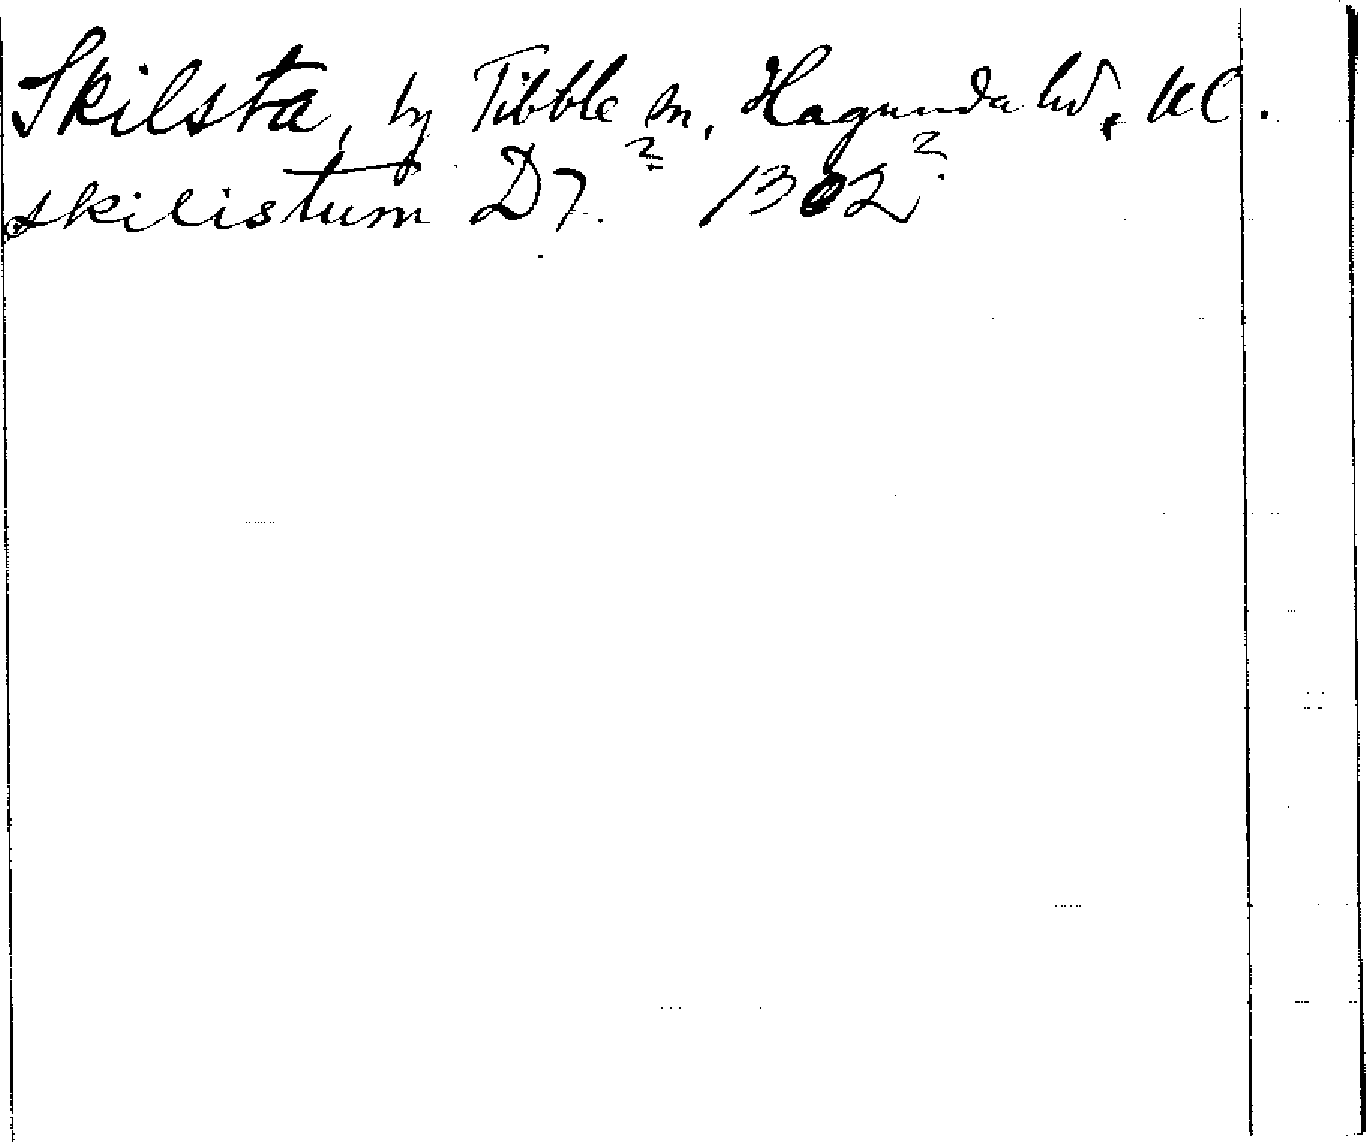 Skilsta, by Tibble sn, Hagunda hd, UL.
skilistum D7.² 1302²